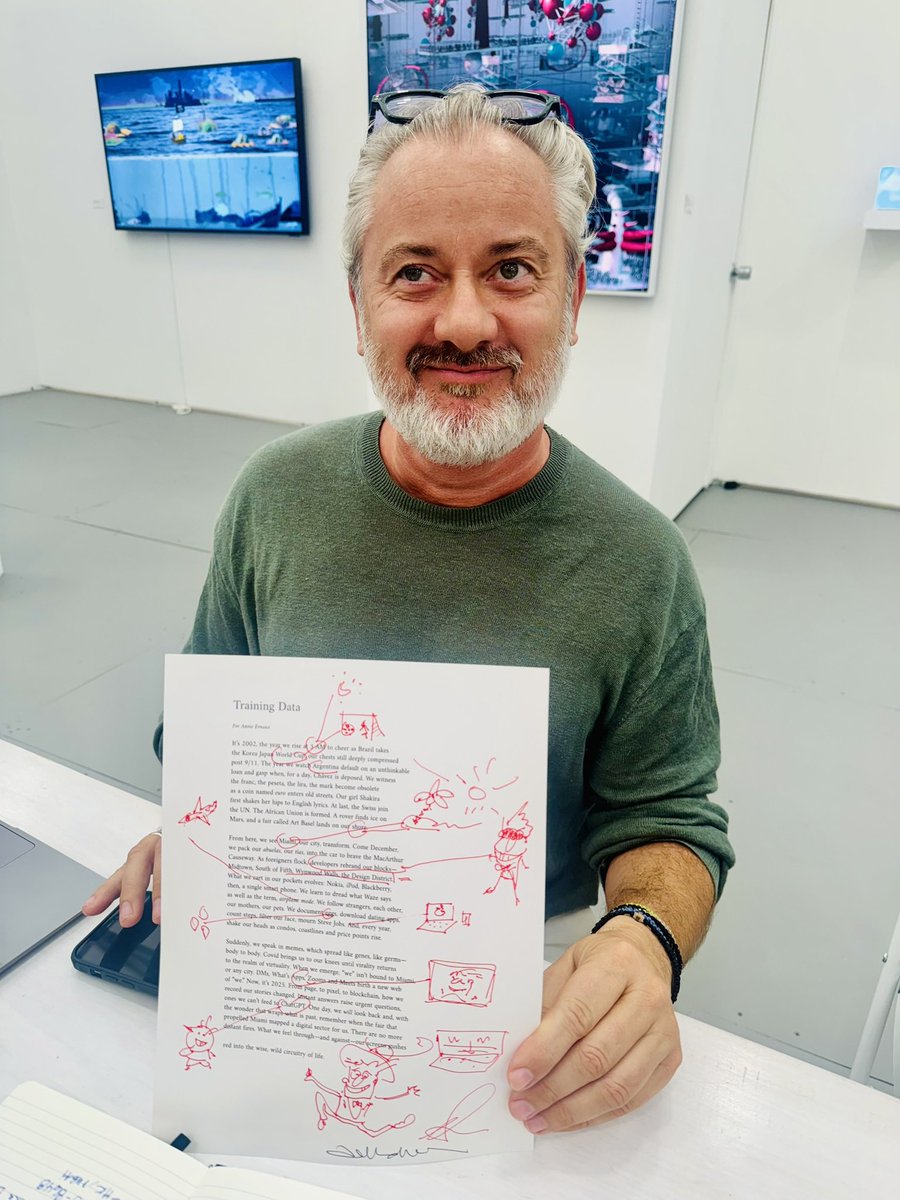 Training Data
For Annie Ernaux
It's 2002, the year we rise at 3 AM to cheer as Brazil takes
the Korea Japan World Cup, our chests still deeply compressed
post 9/11. The year we watch Argentina default on an unthinkable
loan and gasp when, for a day, Chávez is deposed. We witness
the franc, the peseta, the lira, the mark become obsolete
as a coin named euro enters old streets. Our girl Shakira
first shakes her hips to English lyrics. At last, the Swiss join
the UN. The African Union is formed. A rover finds ice on
Mars, and a fair called Art Basel lands on our shore.
From here, we see Miami, our city, transform. Come December,
we pack our abuelas, our tías, into the car to brave the MacArthur
Causeway. As foreigners flock, developers rebrand our blocks—
Midtown, South of Fifth, Wynwood Walls, the Design District.
What we cart in our pockets evolves: Nokia, iPod, Blackberry,
then, a single smart phone. We learn to dread what Waze says
as well as the term, airplane mode. We follow strangers, each other,
our mothers, our pets. We document, download dating apps,
count steps, filter our face, mourn Steve Jobs. And, every year,
shake our heads as condos, coastlines and price points rise.
Suddenly, we speak in memes, which spread like genes, like germs—
body to body. Covid brings us to our knees until virality returns
to the realm of virtuality. When we emerge, "we" isn't bound to Miami
or any city. DMs, What's Apps, Zooms and Meets birth a new web
of "we." Now, it's 2025. From page, to pixel, to blockchain, how we
record our stories changed. Instant answers raise urgent questions,
ones we can't feed to ChatGPT. One day, we will look back and, with
the wonder that wraps what is past, remember when the fair that
propelled Miami mapped a digital sector for us. There are no more
distant fires. What we feel through—and against—our screens pushes
red into the wise, wild circuitry of life.